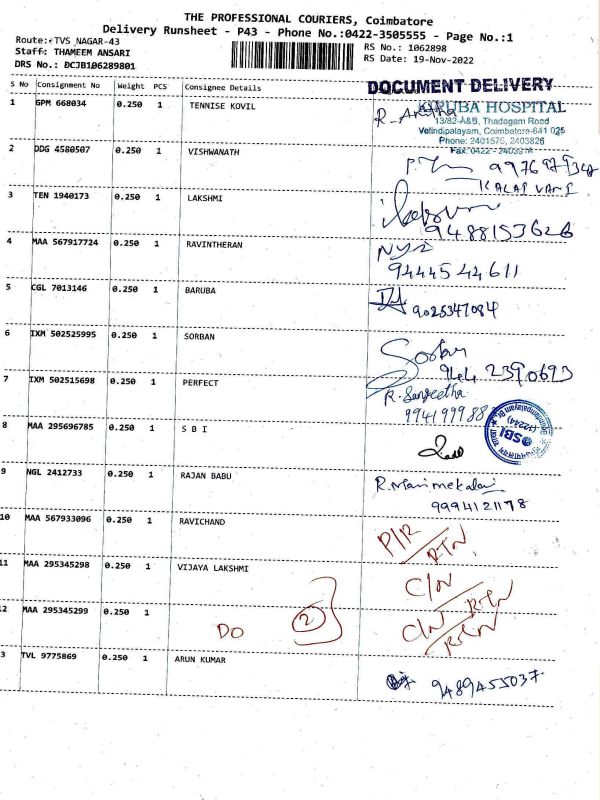 THE PROFESSIONAL COURIERS, Coimbatore
Delivery Runsheet - P43 - Phone No.:0422-3505555 - Page No.:1
Route: TVS NAGAR-43
RS No.: 1062898
Staff: THAMEEM ANSARI
RS Date: 19-Nov-2022
DRS No.: DCJB106289801
S No Consignment No Weight PCS Consignee Details
DOCUMENT DELIVERY
1 GPM 668034 0.250 1 TENNISE KOVIL
KIRUBA HOSPITAL
13/82-A&B, Thadagam Road
Velindipalayam, Coimbatore-641 025
Phone: 2401576, 2403826
Fax: 0422 -
2 DDG 4580507 0.250 1 VISHWANATH
KALAI VANI
3 TEN 1940173 0.250 1 LAKSHMI
9488153626
4 MAA 567917724 0.250 1 RAVINTHERAN
9444544611
5 CGL 7013146 0.250 1 BARUBA
9025347084
6 IXM 502525995 0.250 1 SORBAN
Sorban
944 2390693
7 IXM 502515698 0.250 1 PERFECT
R. Sangeetha
994199988
8 MAA 295696785 0.250 1 S B I
SBI
9 NGL 2412733 0.250 1 RAJAN BABU
R. Manimekalai
9994121178
10 MAA 567933096 0.250 1 RAVICHAND
P/R
RTN
11 MAA 295345298 0.250 1 VIJAYA LAKSHMI
C/N
RTN
12 MAA 295345299 0.250 1
DO 2
C/N
RTN
3 TVL 9775869 0.250 1 ARUN KUMAR
9489455037